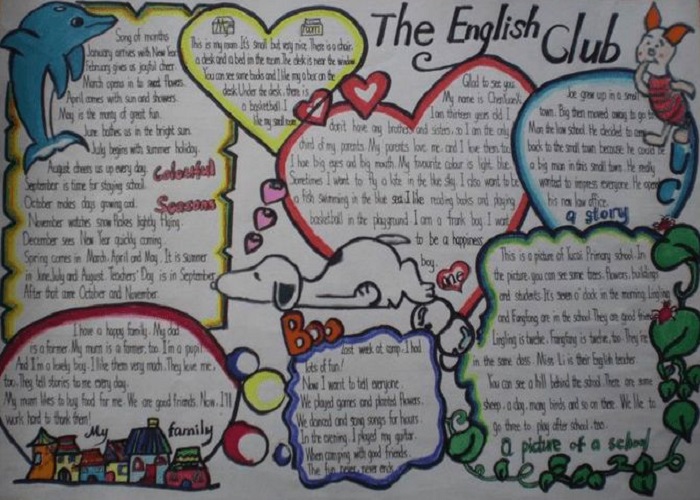 The English Club
Song of months
January arrives with New Year
February gives us joyful cheer.
March opens in to sweet flowers.
April comes with sun and showers.
May is the many of great fun.
June bathes us in the bright sun.
July begins with summer holiday.
August cheers us up every day.
September is time for staying school.
October makes days growing cool.
November watches snow flakes lightly flying.
December sees New Year quickly coming.
Spring comes in March, April and May. It is summer
in June, July and August. Teachers' Day is in September,
After that come October and November.
Colourful
Seasons
My room
This is my room. It's small but very nice. There is a chair,
a desk and a bed in the room. The desk is near the window.
You can see some books and I like my a bar on the
desk. Under the desk, there is
a basketball. I
like my small room.
Glad to see you.
My name is
I am thirteen years old. I
don't have any brothers and sisters, so I am the only
child of my parents. My parents love me, and I love them, too.
I have big eyes and big mouth. My favourite colour is light blue.
Sometimes I want to fly a kite in the blue sky. I also want to be
a fish swimming in the blue sea. I like reading books and playing
basketball in the playground. I am a frank boy. I want
to be a happiness
boy.
me
Joe grew up in a small
town. Big then moved away to go to
Man the law school. He decided to
back to the small town because he could be
a big man in this small town. He really
wanted to impress everyone. He open
his new law office.
a story
I have a happy family. My dad
is a farmer. My mum is a farmer, too. I'm a pupil.
And I'm a lovely boy. I like them very much. They love me,
too. They tell stories to me every day.
My mum likes to buy food for me. We are good friends. Now, I'll
work hard to thank them!
My family
Boo
Last week at camp, I had
lots of fun!
Now I want to tell everyone.
We played games and planted flowers.
We danced and sang songs for hours.
In the evening, I played my guitar.
When camping with good friends.
The fun never, never ends.
This is a picture of Tucai Primary school. In
the picture, you can see some trees, flowers, buildings
and students. It's seven o'clock in the morning. Lingling
and Fangfang are in the school. They are good friends.
Lingling is twelve. Fangfang is twelve, too. They're
in the same class. Miss Li is their English teacher.
You can see a hill behind the school. There are some
sheep, a dog, many birds and so on there. We like to
go there to play after school, too.
a picture of a school